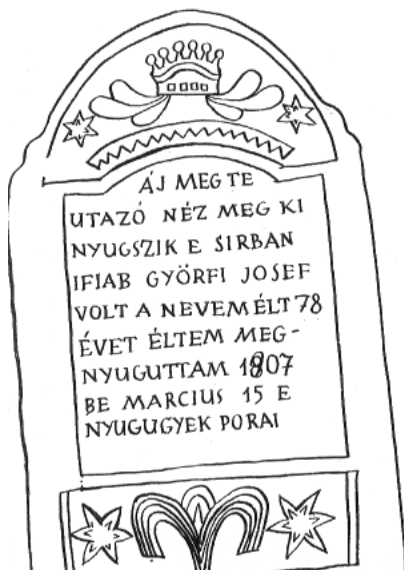 ÁJ MEG TE
UTAZÓ NÉZ MEG KI
NYUGSZIK E SIRBAN
IFIAB GYÖRFI JOSEF
VOLT A NEVEM ÉLT 78
ÉVET ÉLTEM MEG-
NYUGUTTAM 1807
BE MARCIUS 15 E
NYUGUGYEK PORAI